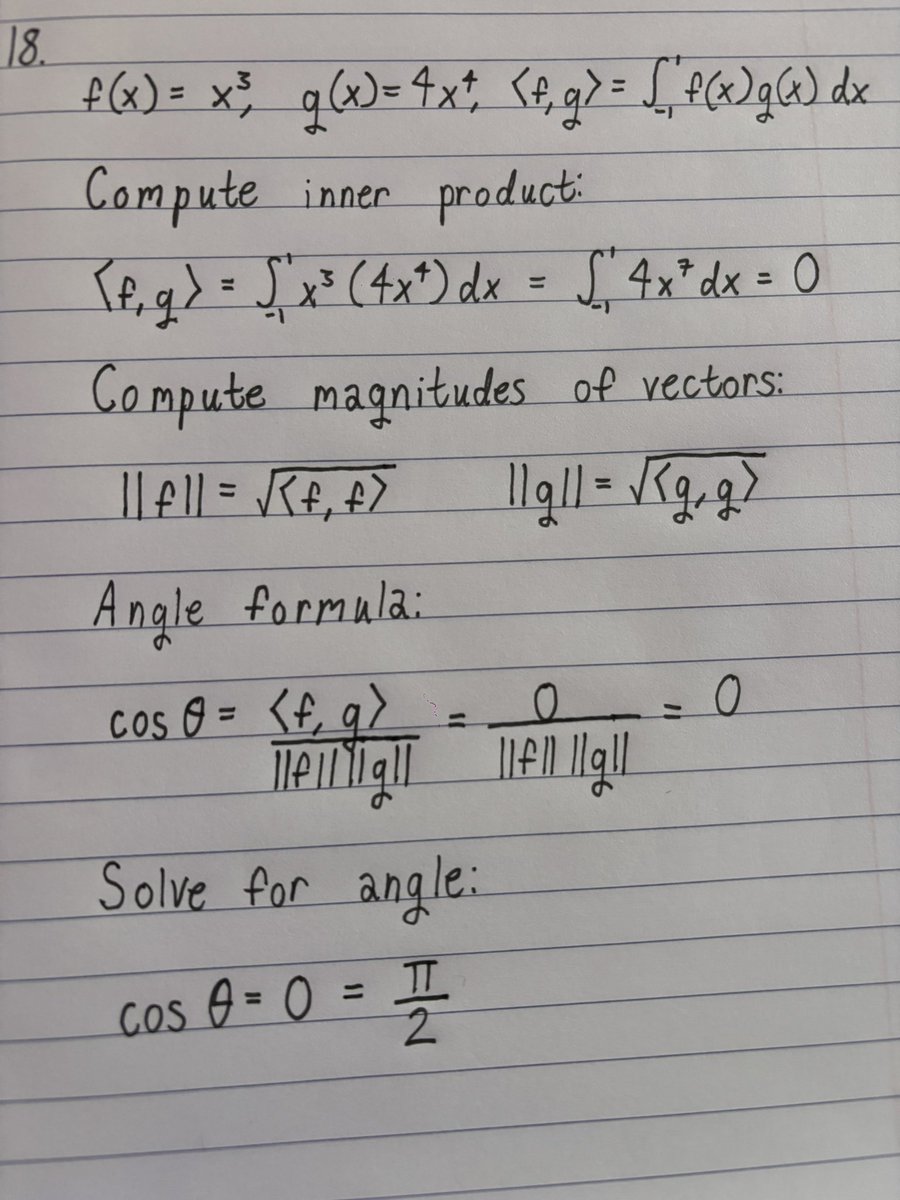 18.
f(x) = x³, g(x) = 4x⁴, ⟨f, g⟩ = ∫₋₁¹ f(x)g(x) dx
Compute inner product:
⟨f, g⟩ = ∫₋₁¹ x³ (4x⁴) dx = ∫₋₁¹ 4x⁷ dx = 0
Compute magnitudes of vectors:
||f|| = √⟨f, f⟩ ||g|| = √⟨g, g⟩
Angle formula:
cos θ = ⟨f, g⟩ / ||f|| ||g|| = 0 / ||f|| ||g|| = 0
Solve for angle:
cos θ = 0 = π/2